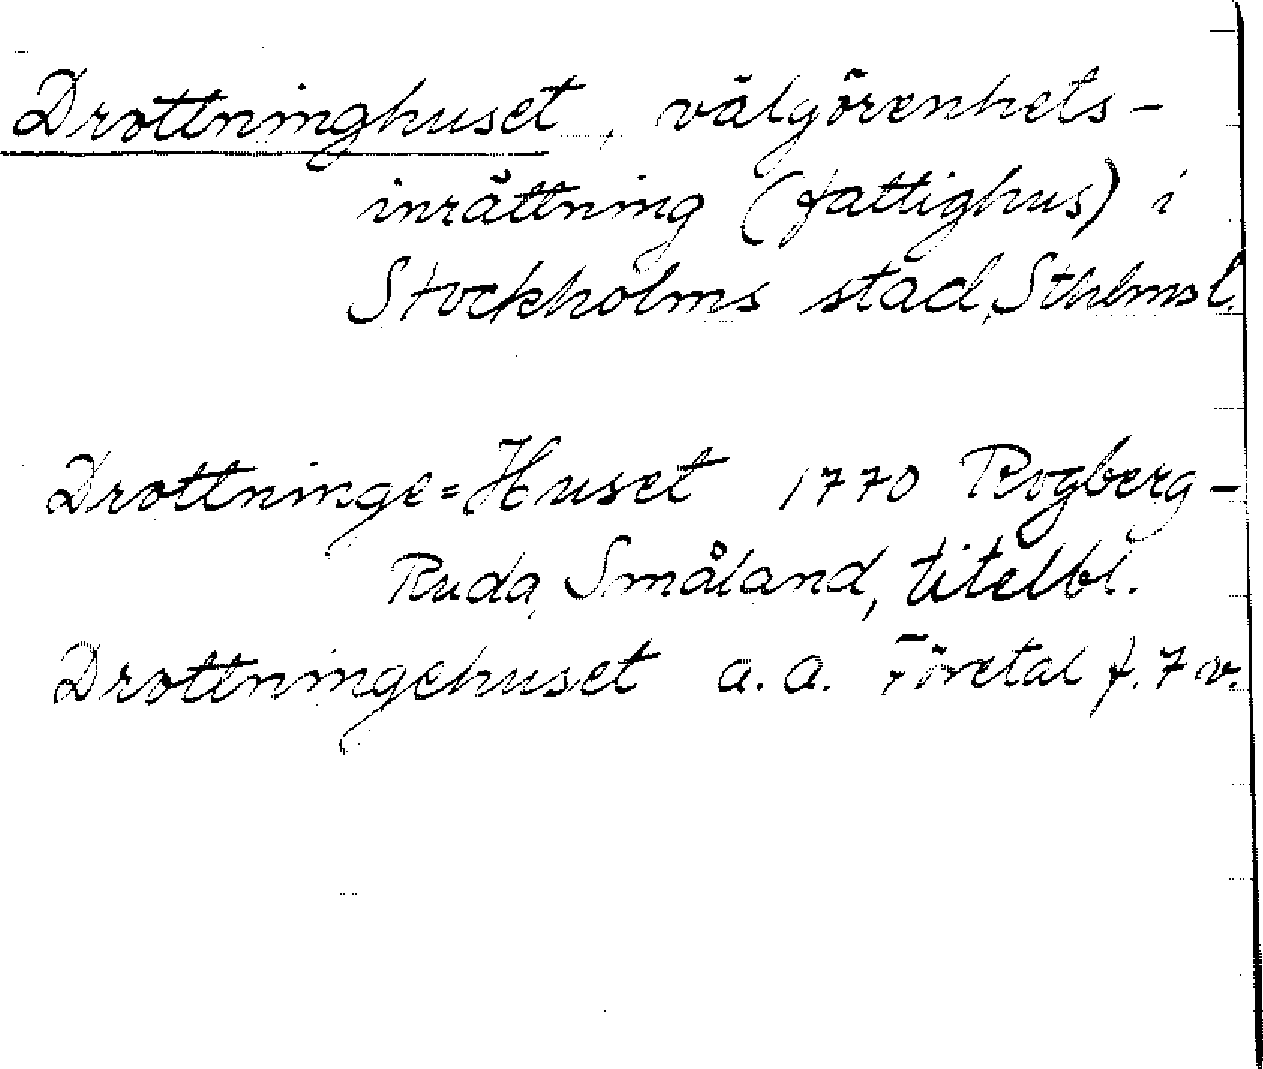 Drottninghuset, välgörenhets-
inrättning (fattighus) i
Stockholms stad, Sthlmsl.
Drottninge=Huset 1770 Rogberg-
Ruda, Småland, titelbl.
Drottningehuset a.a. Företal f. 7 v.